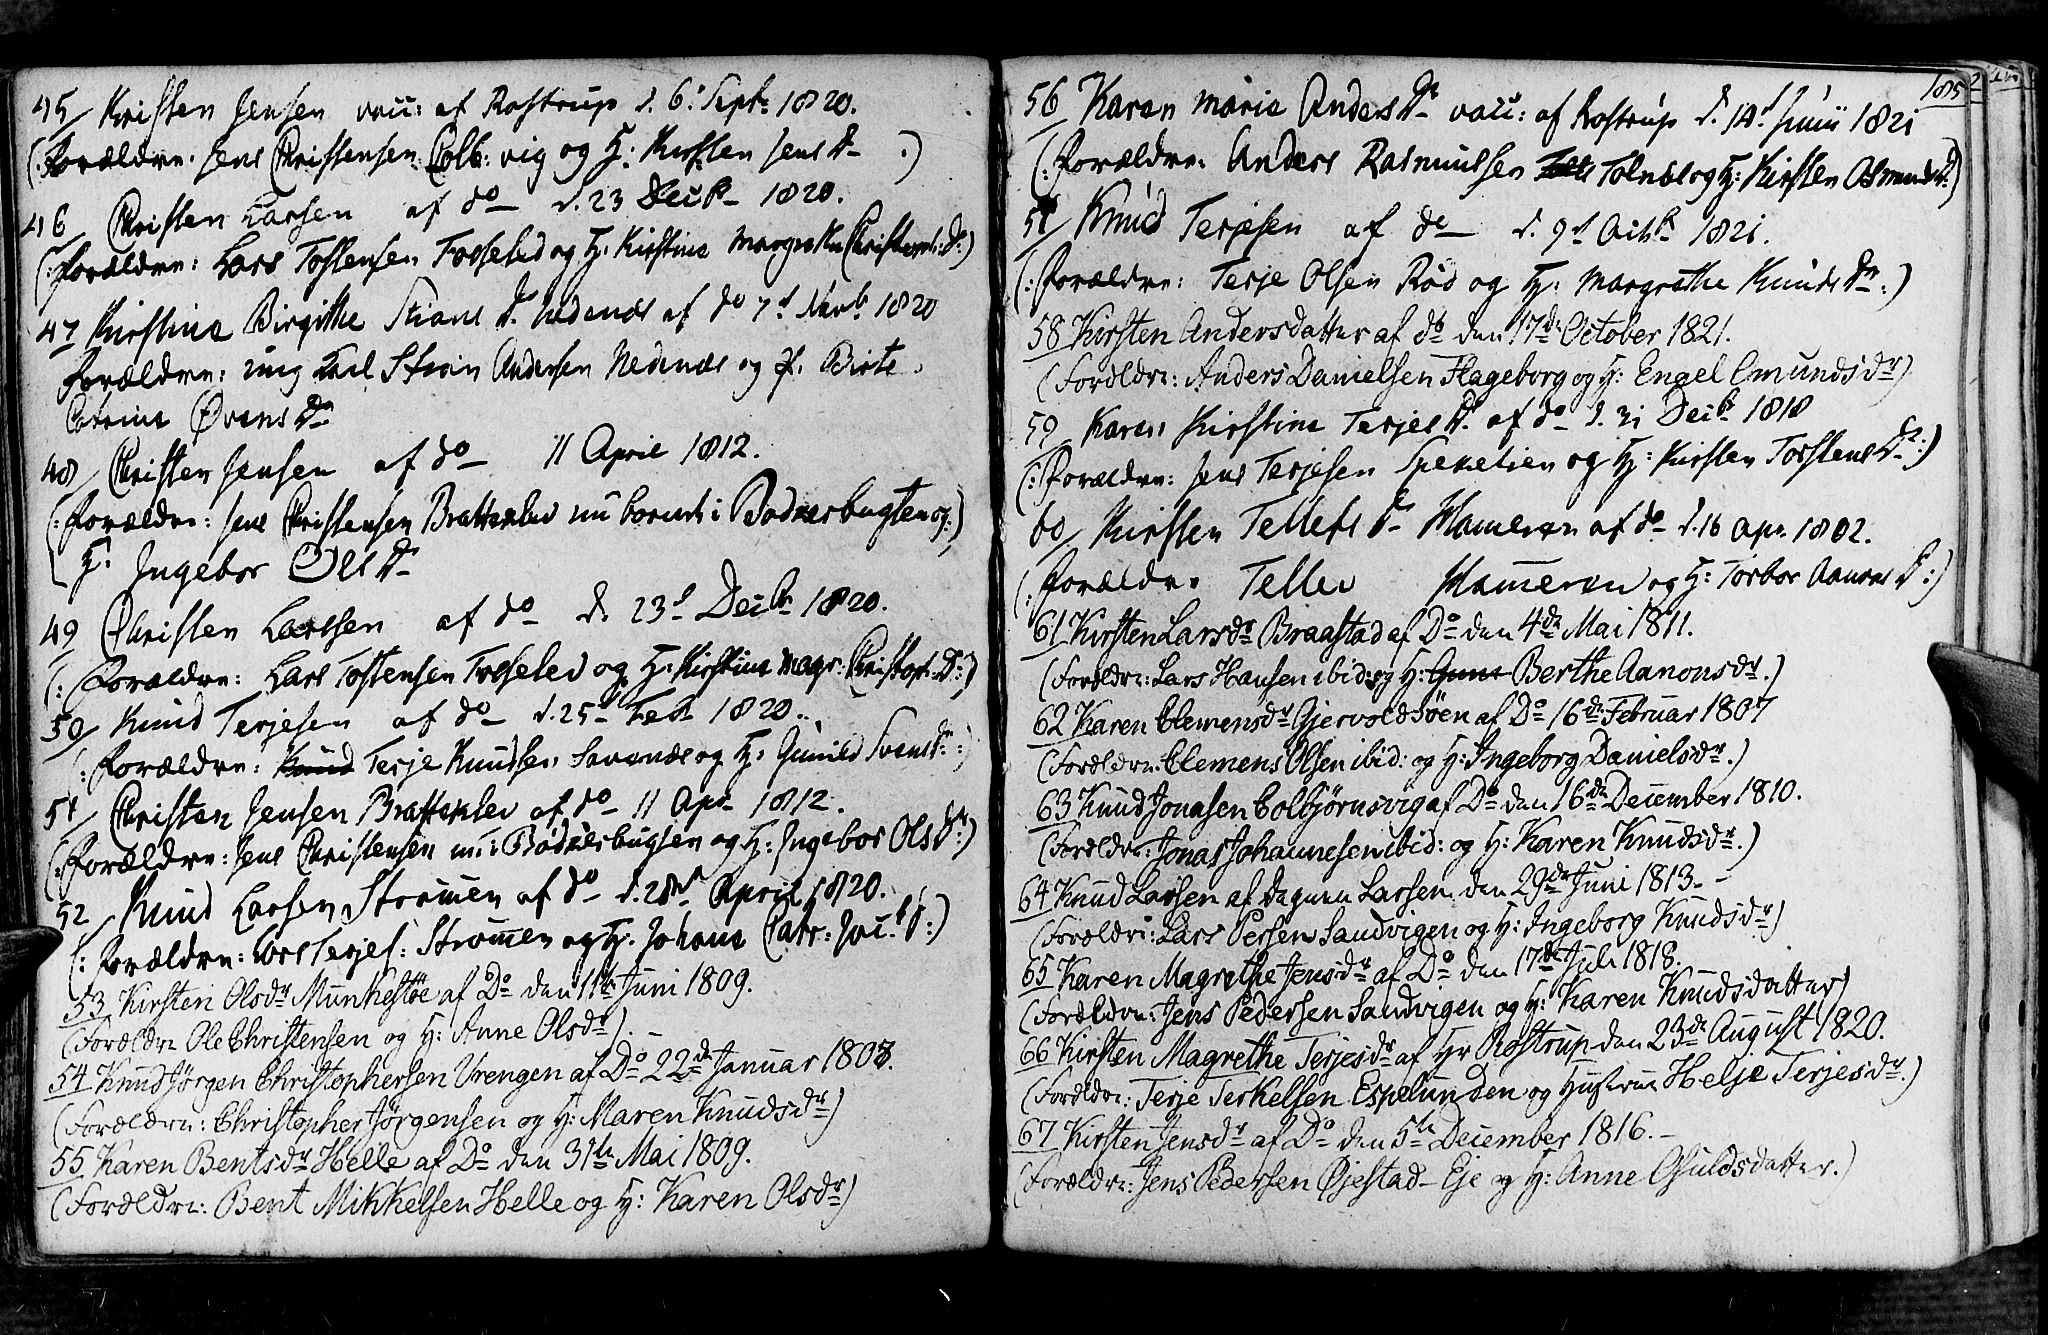 45 Kristen Jensen vacc: af Rostrup d. 6. Septr 1820.
(: Forældre. Jens Christensen Colb: vig og H: Kirsten Jens Dr .)
46 Christen Larsen af do d. 23 Decbr 1820.
(: Forældre: Lars Tostensen Fosseled og H: Kirstine Margrethe Christens: Dr:)
47 Kirstine Birgithe Stians Dr. Nedenæs af do 7d Novbr 1820
Forældre: ung Karl Stian Andersen Nedenæs og P. Birte
Catrine Øvens Dr
48 Christen Jensen af do 11 April 1812.
(: Forældre: Jens Christensen Bratteklev nu boende i Bodkerbugten og:)
H: Ingebor Ols Dr
49 Christen Larssen af do d. 23d Decbr 1820.
(: Forældre: Lars Tostensen Fosselev og H: Kirstine Magr: Christoph: Dr:)
50 Knud Terjesen af do d. 25d Febr 1820.
(: Forældre: Knud Terje Knudsen Savenæs og H: Gunild Svens Dr:)
51 Christen Jensen Bratteklev af do 11 Apr 1812.
(: Forældre: Jens Christensen nu i Bodkerbugten og H: Ingebor Ols Dr:)
52 Knud Larsen Strømmen af do d. 28de April 1820.
(: Forældre: Lars Terjes: Strømmen og H. Johane Catr: Jac. Dr:)
53 Kirsten Olsdr Munkestøe af Do den 11te Juni 1809.
(Forældre Ole Christensen og H: Anne Olsdr).
54 Knud Jørgen Christophersen Vrengen af Do 22de Januar 1808.
(Forældre: Christopher Jørgensen og H: Maren Knudsdr)
55 Karen Bentsdr Helle af Do den 31te Mai 1809.
(Forældre: Bent Mikkelsen Helle og H: Karen Olsdr)
185
56 Karen Marie Anders Dr vacc: af Rostrup d. 14d Junii 1821
(: Forældre: Anders Rasmussen Tolnes og H: Kirsten Osmunds Dr:)
57 Knud Terjesen af do d. 9d Octbr 1821.
(: Forældre: Terje Olsen Rød og H: Margrethe Knuds Dr:)
58 Kirsten Andersdatter af do den 17de October 1821.
(Forældre: Anders Danielsen Hageborg og H: Engel Emundsdr)
59 Karen Kirstine Terjes Dr. af do d. 31 Decbr 1818
(: Forældre: Jens Terjesen Speketien og H: Kirsten Tostens Dr:)
60 Kirsten Tellefs Dr Hameren af do d. 16 Apr. 1802.
(: Forældre Tellev Hameren og H: Torbor Aanons Dr:)
61 Kirsten Larsdr Braastad af Do den 4de Mai 1811.
(Forældre: Lars Hansen ibid: og H: Gunn Berthe Aanonsdr.)
62 Karen Clemensdr Gjervoldsöen af Do 16de Februar 1807
(Forældre: Clemens Olsen ibid: og H: Ingeborg Danielsdr.)
63 Knud Jonasen Colbjørnsvig af Do den 16de December 1810.
(Forældre: Jonas Johannesen ibid: og H: Karen Knudsdr.)
64 Knud Larsen af Dagmen Larsen den 29de Juni 1813.-
(Forældre: Lars Persen Sandvigen og H: Ingeborg Knudsdr)
65 Karen Magrethe Jensdr af Do den 17de Juli 1818.
(Forældre: Jens Pedersen Sandvigen og H: Karen Knudsdatter)
66 Kirsten Magrethe Terjesdr af Hr Rostrup den 23de August 1820.
(Forældre: Terje Terkelsen Espelunden og Hustrue Helje Terjesdr.)
67 Kirsten Jensdr af Do den 5te December 1816.-
(Forældre: Jens Pedersen Øjestad-Eje og H: Anne Osuldsdatter.)